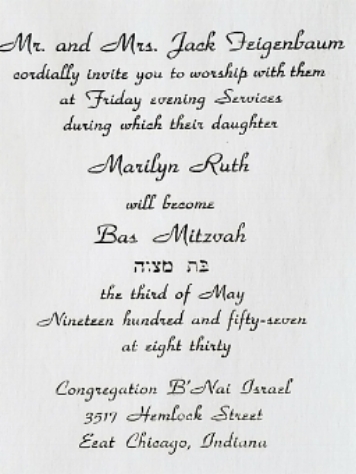 Mr. and Mrs. Jack Feigenbaum
cordially invite you to worship with them
at Friday evening Services
during which their daughter
Marilyn Ruth
will become
Bas Mitzvah
בת מצוה
the third of May
Nineteen hundred and fifty-seven
at eight thirty
Congregation B'Nai Israel
3517 Hemlock Street
East Chicago, Indiana